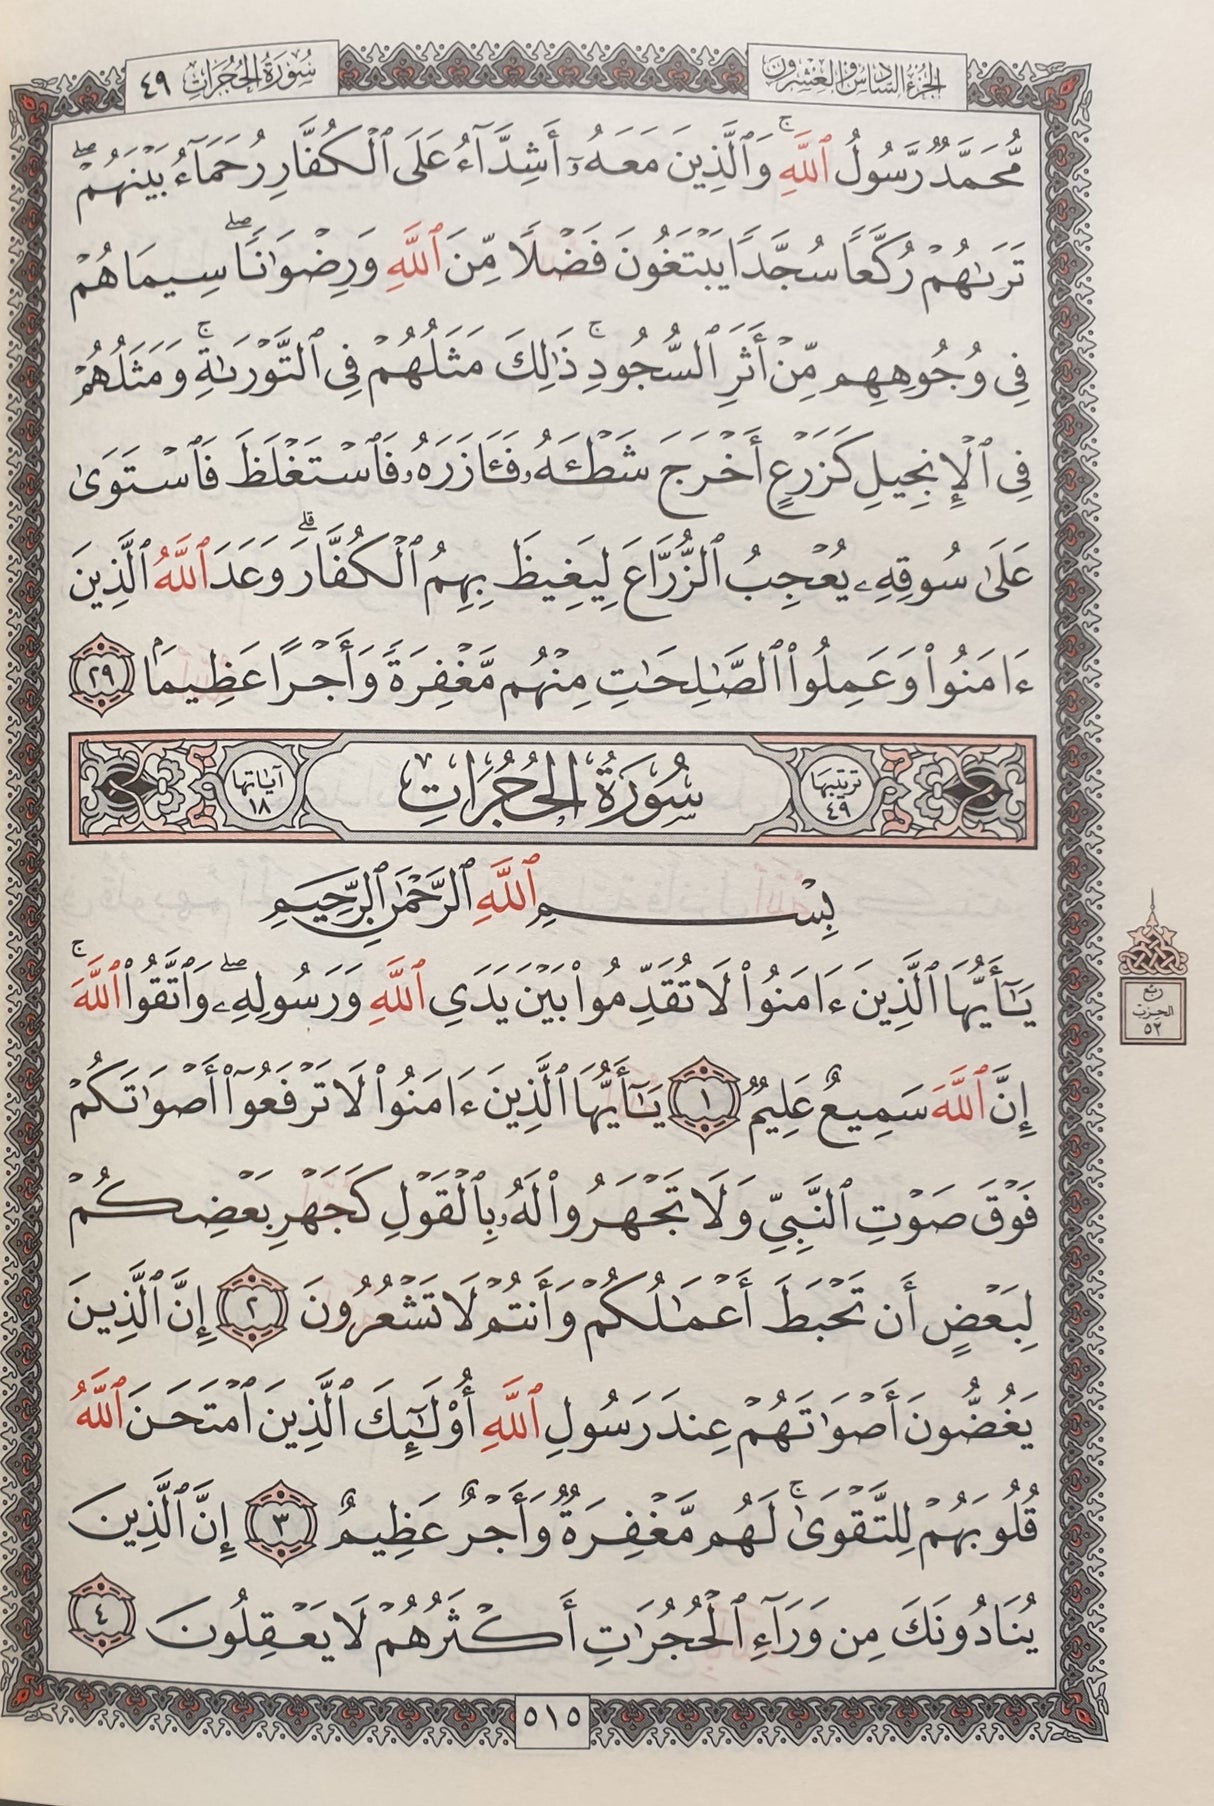 سُورَةُ الحُجُرَاتِ ٤٩
الجُزْءُ السَّادِسُ وَالعِشْرُونَ
مُّحَمَّدٌ رَّسُولُ ٱللَّهِۚ وَٱلَّذِينَ مَعَهُۥٓ أَشِدَّآءُ عَلَى ٱلْكُفَّارِ رُحَمَآءُ بَيْنَهُمْۖ
تَرَىٰهُمْ رُكَّعًا سُجَّدًا يَبْتَغُونَ فَضْلًا مِّنَ ٱللَّهِ وَرِضْوَٰنًاۖ سِيمَاهُمْ
فِى وُجُوهِهِم مِّنْ أَثَرِ ٱلسُّجُودِۚ ذَٰلِكَ مَثَلُهُمْ فِى ٱلتَّوْرَىٰةِۚ وَمَثَلُهُمْ
فِى ٱلْإِنجِيلِ كَزَرْعٍ أَخْرَجَ شَطْـَٔهُۥ فَـَٔازَرَهُۥ فَٱسْتَغْلَظَ فَٱسْتَوَىٰ
عَلَىٰ سُوقِهِۦ يُعْجِبُ ٱلزُّرَّاعَ لِيَغِيظَ بِهِمُ ٱلْكُفَّارَۗ وَعَدَ ٱللَّهُ ٱلَّذِينَ
ءَامَنُوا۟ وَعَمِلُوا۟ ٱلصَّٰلِحَٰتِ مِنْهُم مَّغْفِرَةً وَأَجْرًا عَظِيمًۢا ٢٩
تَرْتِيبُهَا ٤٩ سُورَةُ الحُجُرَاتِ آيَاتُهَا ١٨
بِسْمِ ٱللَّهِ ٱلرَّحْمَٰنِ ٱلرَّحِيمِ
يَٰٓأَيُّهَا ٱلَّذِينَ ءَامَنُوا۟ لَا تُقَدِّمُوا۟ بَيْنَ يَدَىِ ٱللَّهِ وَرَسُولِهِۦۖ وَٱتَّقُوا۟ ٱللَّهَۚ
إِنَّ ٱللَّهَ سَمِيعٌ عَلِيمٌ ١ يَٰٓأَيُّهَا ٱلَّذِينَ ءَامَنُوا۟ لَا تَرْفَعُوٓا۟ أَصْوَٰتَكُمْ
فَوْقَ صَوْتِ ٱلنَّبِىِّ وَلَا تَجْهَرُوا۟ لَهُۥ بِٱلْقَوْلِ كَجَهْرِ بَعْضِكُمْ
لِبَعْضٍ أَن تَحْبَطَ أَعْمَٰلُكُمْ وَأَنتُمْ لَا تَشْعُرُونَ ٢ إِنَّ ٱلَّذِينَ
يَغُضُّونَ أَصْوَٰتَهُمْ عِندَ رَسُولِ ٱللَّهِ أُو۟لَٰٓئِكَ ٱلَّذِينَ ٱمْتَحَنَ ٱللَّهُ
قُلُوبَهُمْ لِلتَّقْوَىٰۚ لَهُم مَّغْفِرَةٌ وَأَجْرٌ عَظِيمٌ ٣ إِنَّ ٱلَّذِينَ
يُنَادُونَكَ مِن وَرَآءِ ٱلْحُجُرَٰتِ أَكْثَرُهُمْ لَا يَعْقِلُونَ ٤
رُبْعُ
الحِزْبِ
٥٢
٥١٥